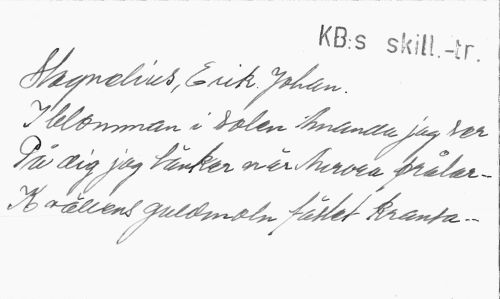 KB:s skill.-tr.
Stagnelius, Erik Johan.
I blomman i solen Amanda jag ser
På dig jag tänker när hurvea prålar-
Kvällens guldmoln fästet kransa--